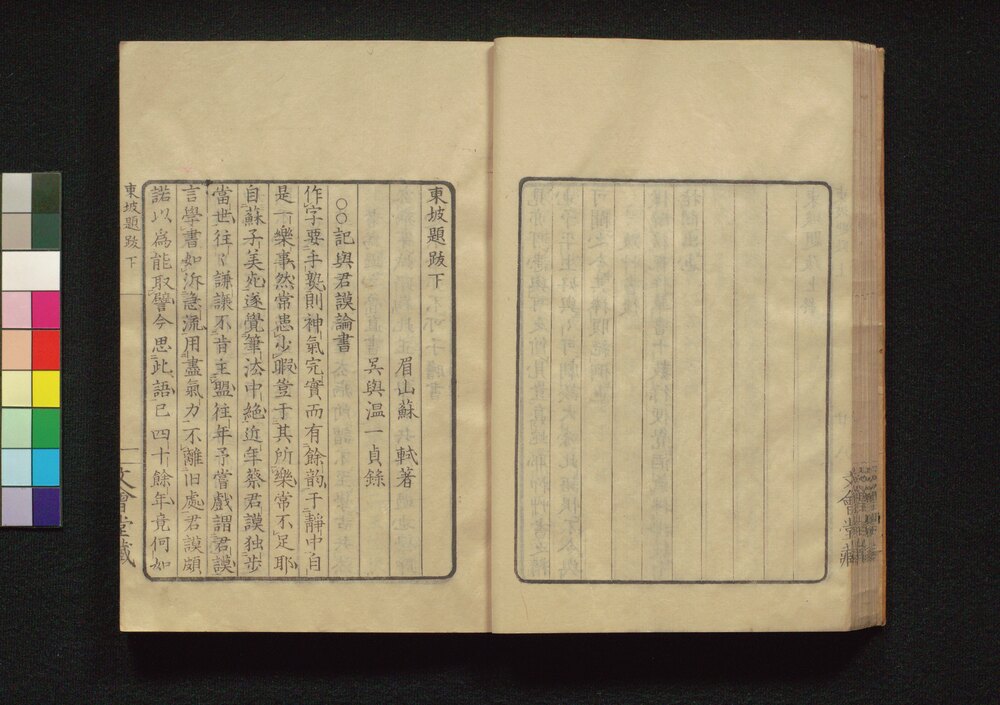 東坡題跋下
眉山蘇軾著
吳興温一貞錄
○○記與君謨論書
作字要手熟則神氣完實而有餘韵于靜中自
是一樂事然常患少暇豈于其所樂常不足耶
自蘇子美死遂覺筆法中絶近年蔡君謨独步
當世往〻謙讓不肯主盟往年予嘗戲謂君謨
言學書如泝急流用盡氣力不離旧處君謨頗
諾以為能取譬今思此語已四十餘年竟何如
東坡題跋 下
一
文會堂藏
文會堂藏